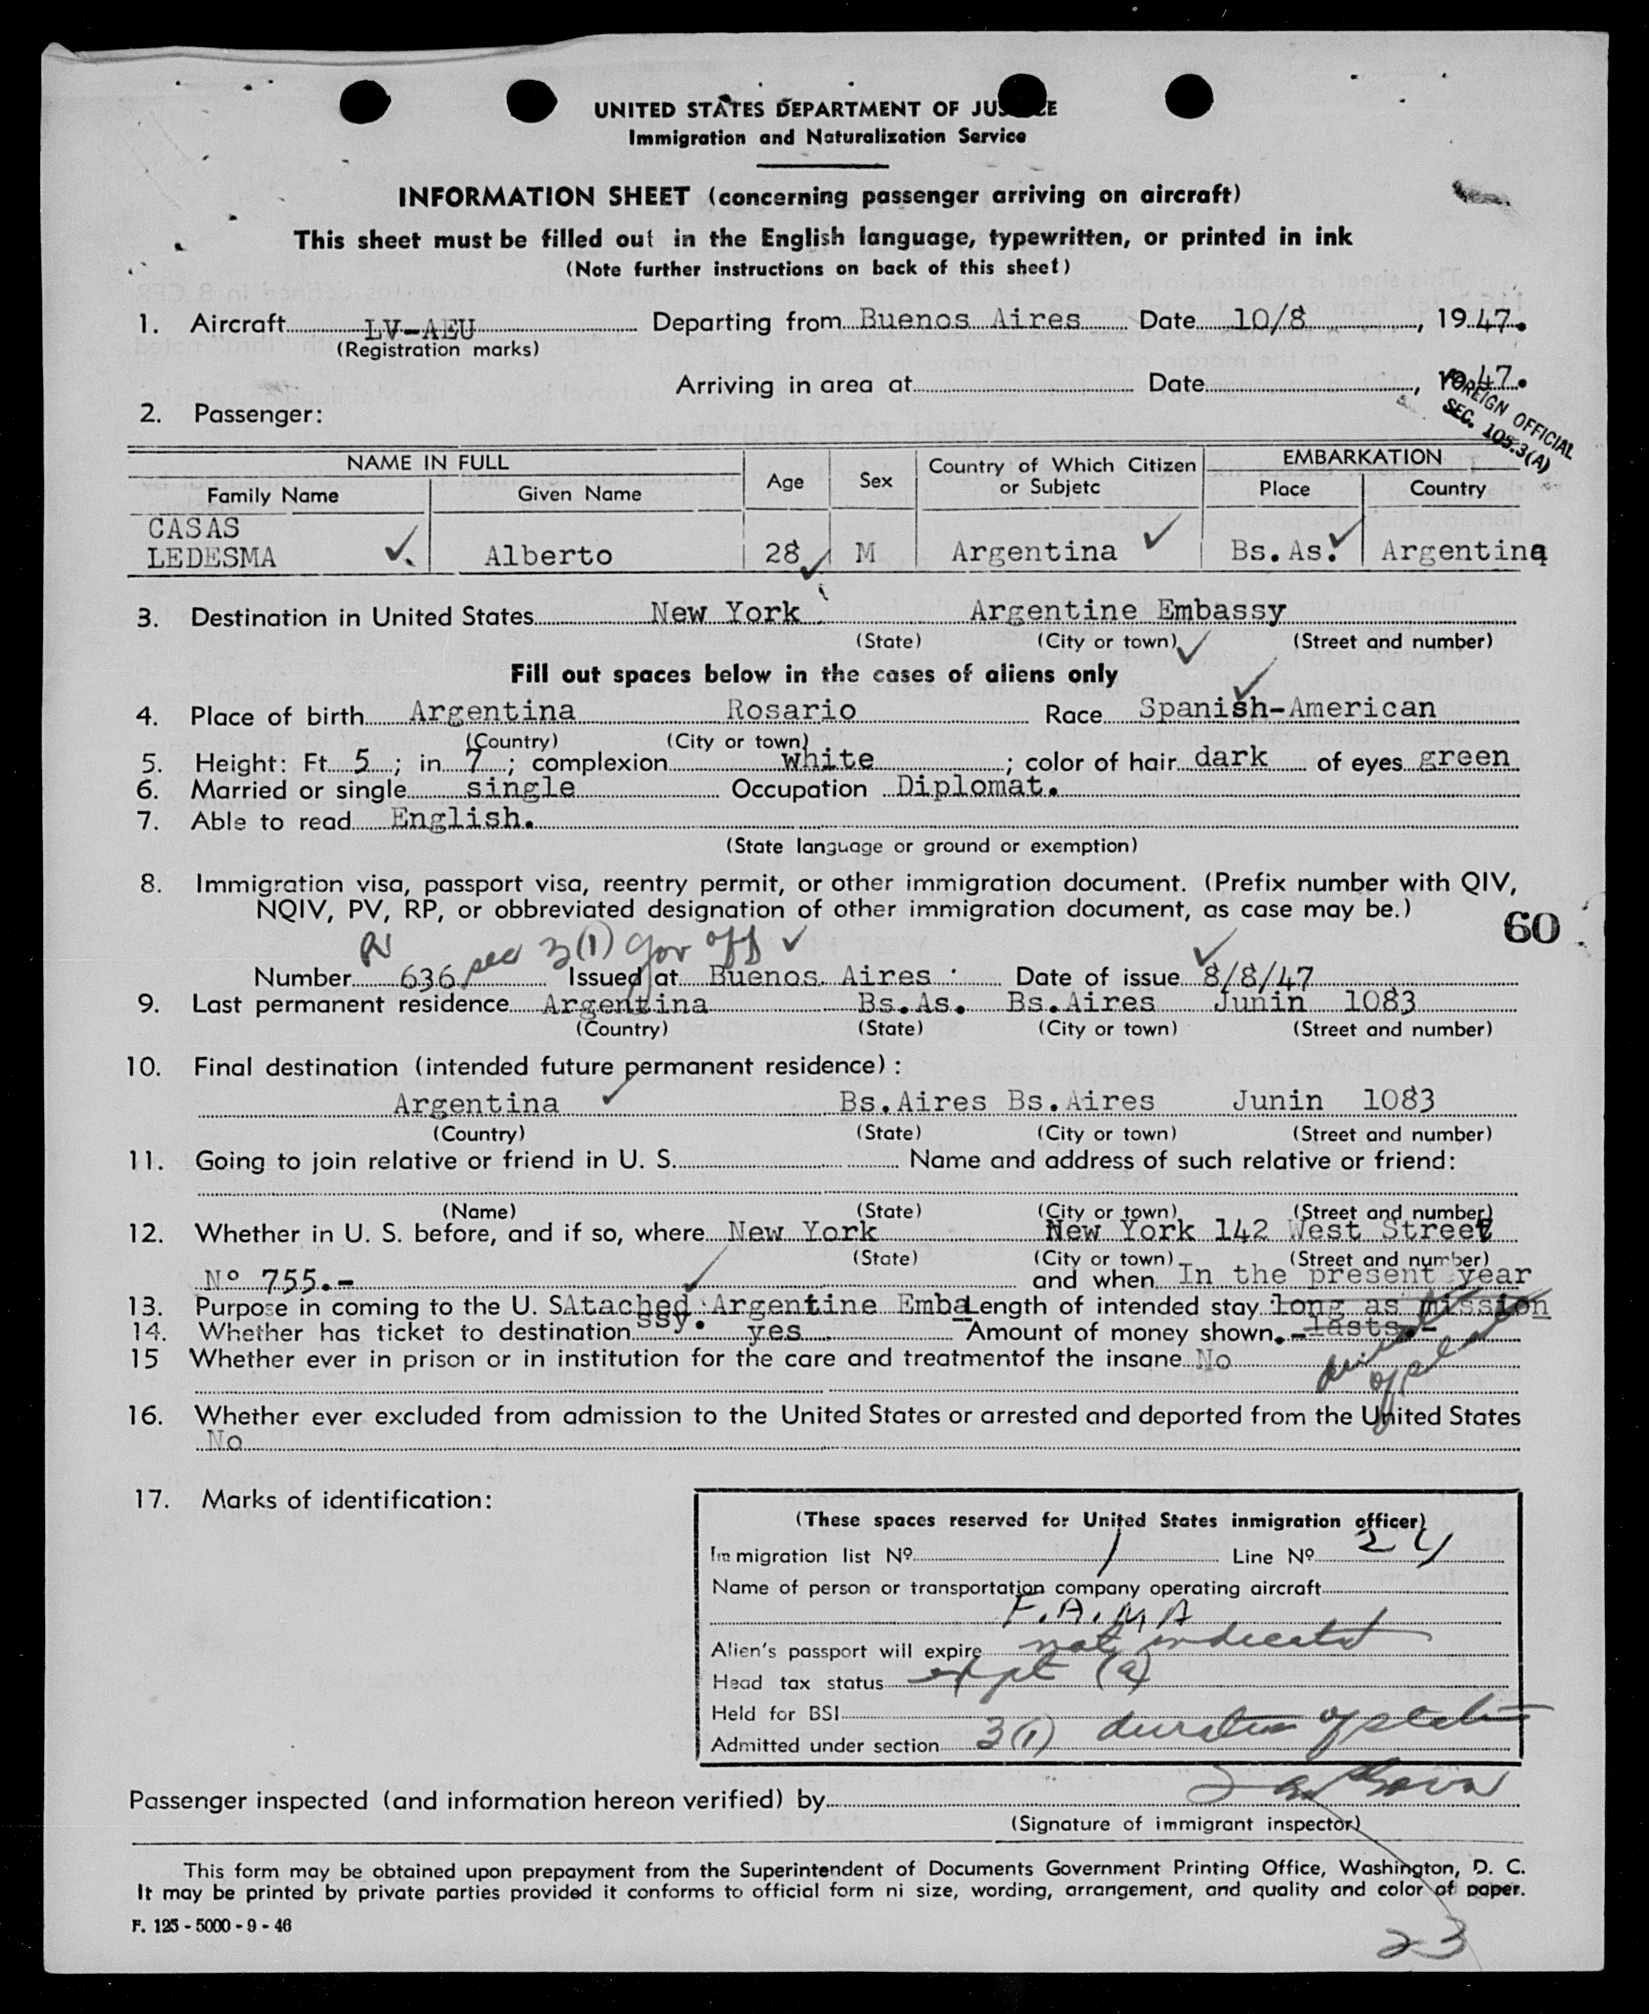 UNITED STATES DEPARTMENT OF JUSTICE
Immigration and Naturalization Service
INFORMATION SHEET (concerning passenger arriving on aircraft)
This sheet must be filled out in the English language, typewritten, or printed in ink
(Note further instructions on back of this sheet)
1. Aircraft LV-AEU Departing from Buenos Aires Date 10/8, 1947.
(Registration marks)
Arriving in area at Date , 1947.
FOREIGN OFFICIAL
SEC. 105.3(A)
2. Passenger:
NAME IN FULL Age Sex Country of Which Citizen or Subjetc EMBARKATION
Family Name Given Name Place Country
CASAS
LEDESMA Alberto 28 M Argentina Bs.As. Argentina
3. Destination in United States New York Argentine Embassy
(State) (City or town) (Street and number)
Fill out spaces below in the cases of aliens only
4. Place of birth Argentina Rosario Race Spanish-American
(Country) (City or town)
5. Height: Ft 5; in 7; complexion white; color of hair dark of eyes green
6. Married or single single Occupation Diplomat.
7. Able to read English.
(State language or ground or exemption)
8. Immigration visa, passport visa, reentry permit, or other immigration document. (Prefix number with QIV,
NQIV, PV, RP, or obbreviated designation of other immigration document, as case may be.)
60
sec 3(1) gov off
Number 636 Issued at Buenos Aires Date of issue 8/8/47
9. Last permanent residence Argentina Bs.As. Bs.Aires Junin 1083
(Country) (State) (City or town) (Street and number)
10. Final destination (intended future permanent residence):
Argentina Bs.Aires Bs.Aires Junin 1083
(Country) (State) (City or town) (Street and number)
11. Going to join relative or friend in U. S. Name and address of such relative or friend:
(Name) (State) (City or town) (Street and number)
12. Whether in U. S. before, and if so, where New York New York 142 West Street
(State) (City or town) (Street and number)
Nº 755.- and when In the present year
13. Purpose in coming to the U. S Atached Argentine Emba Length of intended stay long as mission
ssy. lasts.-
14. Whether has ticket to destination yes Amount of money shown.-
15 Whether ever in prison or in institution for the care and treatmentof the insane No
16. Whether ever excluded from admission to the United States or arrested and deported from the United States
No
17. Marks of identification:
(These spaces reserved for United States inmigration officer)
Immigration list Nº 1 Line Nº 24
Name of person or transportation company operating aircraft
F.A.M.A
Alien's passport will expire not indicated
Head tax status expt (a)
Held for BSI
Admitted under section 3(1) duration of status
Passenger inspected (and information hereon verified) by
(Signature of immigrant inspector)
This form may be obtained upon prepayment from the Superintendent of Documents Government Printing Office, Washington, D. C.
It may be printed by private parties provided it conforms to official form ni size, wording, arrangement, and quality and color of paper.
F. 125 - 5000 - 9 - 46
23